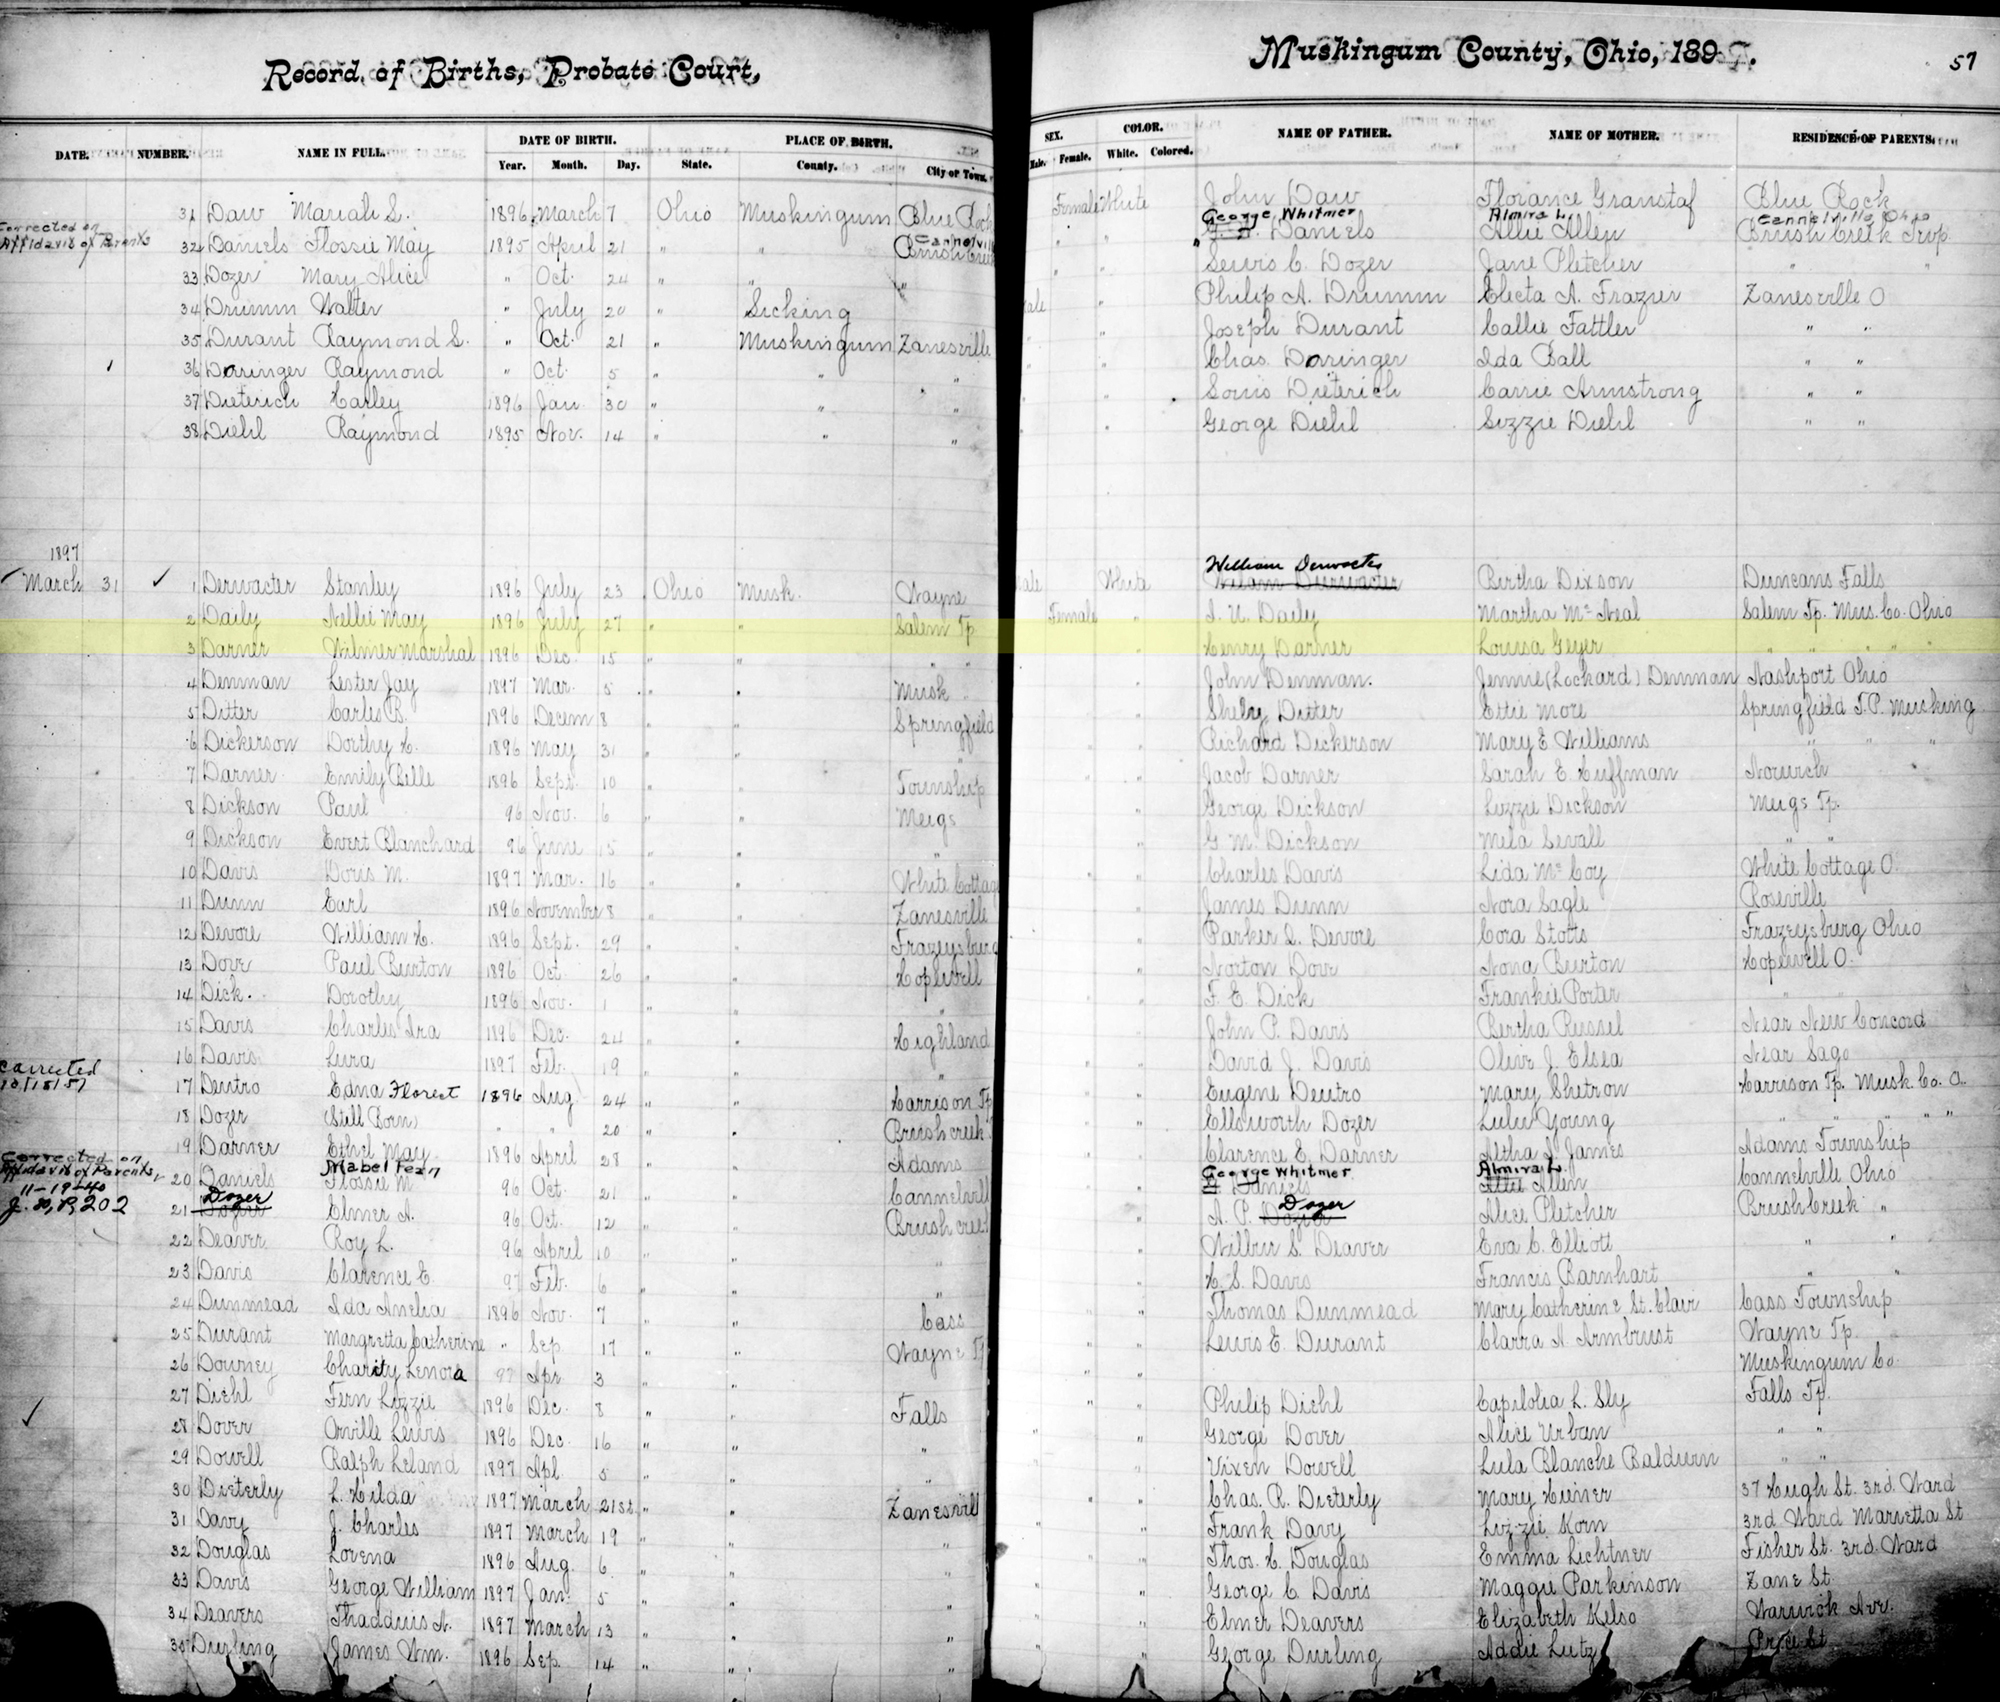 Record of Births, Probate Court,
Muskingum County, Ohio, 1897.
57
DATE. NUMBER. NAME IN FULL. DATE OF BIRTH. PLACE OF BIRTH. SEX. COLOR. NAME OF FATHER. NAME OF MOTHER. RESIDENCE OF PARENTS.
Year. Month. Day. State. County. City or Town. Male. Female. White. Colored.
31 Daw Mariah S. 1896 March 7 Ohio Muskingum Blue Rock Female White John Daw Florance Granstaf Blue Rock
Corrected on Affidavit of Parents
George Whitmer Almira L. Cannelville Ohio
32 Daniels Flossie May 1895 April 21 " " Cannelville Brush Creek " " Daniels Allie Allen Brush Creek Twp
33 Dozer Mary Alice " Oct. 24 " " " " " Lewis C. Dozer Jane Pletcher " "
34 Drumm Walter " July 20 " Licking Male " Philip A. Drumm Electa A. Frazier Zanesville O
35 Durant Raymond S. " Oct. 21 " Muskingum Zanesville " " Joseph Durant Callie Fattler " "
36 Doringer Raymond " Oct. 5 " " " " " Chas. Doringer Ida Ball " "
37 Dieterich Carley 1896 Jan. 30 " " " " " Louis Dieterich Carrie Armstrong " "
38 Diehl Raymond 1895 Nov. 14 " " " " " George Diehl Lizzie Diehl " "
1897
William Derwacter
March 31 1 Derwacter Stanley 1896 July 23 Ohio Musk. Wayne Male White Wilam Durwacter Birtha Dixson Duncans Falls
2 Daily Nellie May 1896 July 27 " " Salem Tp Female " I. U. Daily Martha McNeal Salem Tp. Mus. Co. Ohio
3 Darner Wilmer Marshal 1896 Dec. 15 " " " " " Henry Darner Louisa Geyer " " " "
4 Denman Lester Jay 1897 Mar. 5 " " Musk " John Denman. Jennie (Lockard) Denman Nashport Ohio
5 Ditter Carles B. 1896 Decem 8 " " Springfield " Shelby Ditter Ettie More Springfield T.P. Musking
6 Dickerson Dorthy H. 1896 May 31 " " " " Richard Dickerson Mary E Williams " " "
7 Darner Emily Belle 1896 Sept. 10 " " Township " " Jacob Darner Sarah E. Huffman Norwich
8 Dickson Paul 96 Nov. 6 " " Meigs " George Dickson Lizzie Dickson Meigs Tp.
9 Dickson Evert Blanchard 96 June 15 " " " " G. M. Dickson Mela Sevall " "
10 Davis Doris M. 1897 Mar. 16 " " White Cottage " " Charles Davis Lida McCoy White Cottage O.
11 Dunn Earl 1896 November 8 " " Zanesville " James Dunn Nora Sagle Roseville
12 Devore William H. 1896 Sept. 29 " " Frazeysburg " Parker L. Devore Cora Stotts Frazeysburg Ohio
13 Dove Paul Burton 1896 Oct 26 " " Hopewell " Norton Dove Nona Burton Hopewell O.
14 Dick. Dorothy 1896 Nov. 1 " " " " F. E. Dick Frankie Porter "
15 Davis Charles Ira 1896 Dec. 24 " " Highland " John P. Davis Bertha Russel Near New Concord
16 Davis Lura 1897 Feb. 19 " " " " David J. Davis Olive J. Elsea Near Sago
Corrected 10/15/57
17 Deutro Edna Florest 1896 Aug 24 " " Harrison Tp " " Eugene Deutro Mary Shetron Harrison Tp. Musk. Co. O.
18 Dozer (Still Born) " " 20 " " Brush creek " Ellsworth Dozer Lulu Young " " " "
19 Darner Ethel May 1896 April 28 " " Adams " " Clarence E. Darner Altha I. James Adams Township
Corrected on Affidavit of Parents,
11-19-40
J. 30, P. 202
Mabel Fern George Whitmer Almira L.
20 Daniels Flossie M 96 Oct. 21 " " Cannelvill " Daniels Allie Allen Cannelville Ohio
Dozer Dozer
21 Dozier Elmer A. 96 Oct. 12 " " Brush creek " A. P. Dozier Alice Pletcher Brush Creek "
22 Deaver Roy L. 96 April 10 " " " " Wilbur S. Deaver Eva C. Elliott " "
23 Davis Clarence E. 97 Feb. 6 " " " " H. S. Davis Francis Barnhart " "
24 Dunmead Ida Anelia 1896 Nov. 7 " " Cass " " Thomas Dunmead Mary Catherine St. Clair Cass Township
25 Durant Margretta Catherine " Sep 17 " " Wayne Tp " " Lewis E. Durant Clarra A Armbrust Wayne Tp.
26 Downey Charity Lenora 97 Apr 3 " " Muskingum Co.
27 Diehl Fern Lizzie 1896 Dec. 8 " " Falls " " Philip Diehl Capilolia L. Sly Falls Tp.
28 Dover Orville Lewis 1896 Dec. 16 " " " " " George Dover Alice Urban " "
29 Dowell Ralph Leland 1897 Apl 5 " " " " Vixen Dowell Lula Blanche Baldwin " "
30 Dieterly L. Hilda 1897 March 21st. " " Zanesvill " " Chas. R. Dieterly Mary Huner 37 Hugh St. 3rd. Ward
31 Davy J. Charles 1897 March 19 " " " " " Frank Davy Lizzie Korn 3rd Ward Marietta St
32 Douglas Lorena 1896 Aug. 6 " " " " " Thos. H. Douglas Emma Lichtner Fisher St. 3rd. Ward
33 Davis George William 1897 Jan. 5 " " " " " George C. Davis Maggie Parkinson Zane St.
34 Deavers Thaddius A. 1897 March 13 " " " " " Elmer Deavers Elizabeth Kelso Warwick Ave.
35 Durling James Wm. 1896 Sep. 14 " " " " " George Durling Addie Lutz Price St